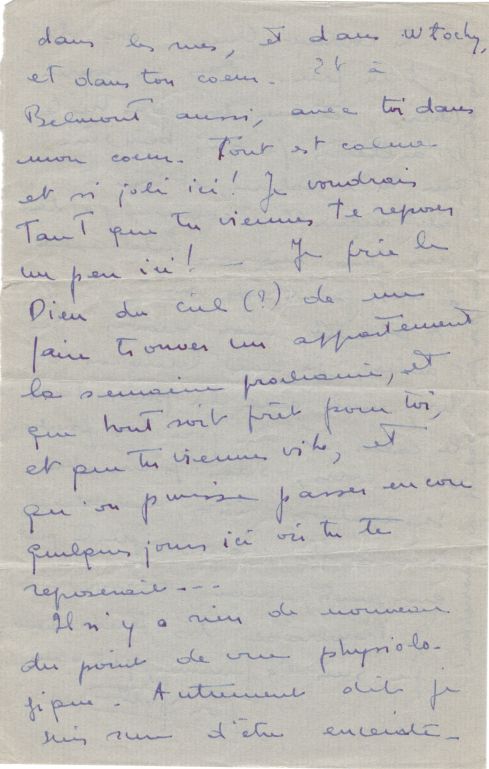 dans les rues, et dans Włochy,
et dans ton coeur. Et à
Belmont aussi, avec toi dans
mon coeur. Tout est calme
et si joli ici! Je voudrais
tant que tu viennes te reposer
un peu ici! — Je prie le
Dieu du ciel (?) de me
faire trouver un appartement
la semaine prochaine, et
que tout soit prêt pour toi,
et que tu viennes vite, et
qu'on puisse passer encore
quelques jours ici où tu te
reposerais ---
Il n'y a rien de nouveau
du point de vue physiolo-
gique. Autrement dit je
suis sûre d'être enceinte.